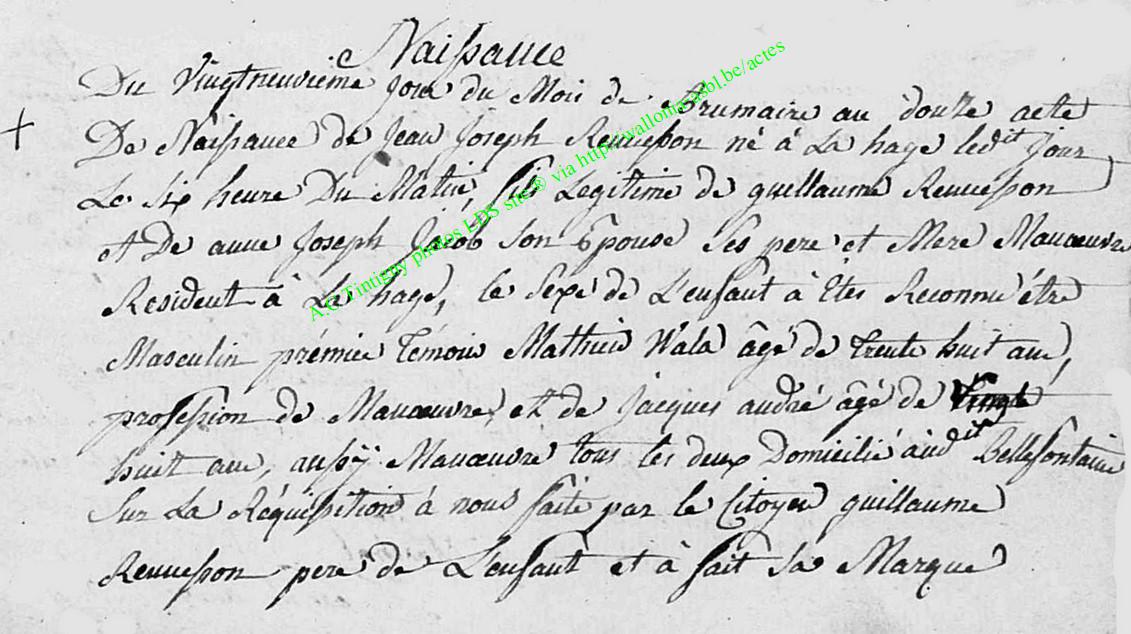 Naissance
Du Vingtneuvieme Jour du Mois de Brumaire an douze acte
+ De Naissance de Jean Joseph Renuesson né à La hage ledit Jour
Le six heure Du Matin, fils Legitime de guillaume Renuesson
et De anne Joseph Jacob son Epouse Ses pere et Mere Manoeuvre
Resident à La hage, le Sexe de L'enfant à Etes Reconnu être
Masculin prémier Témoin Mathieu Wala âgé de trente huit ans,
profession de Manoeuvre, et de Jacques andré âgé de Vingt
huit ans, aussÿ Manoeuvre tous les deux Domicilié audit Bellefontaine
Sur La Réquisition à nous faite par le Citoyen guillaume
Renuesson pere de L'enfant et à fait sa Marque
A.C. Tintigny photos LDS site® via http://wallonia-asbl.be/actes